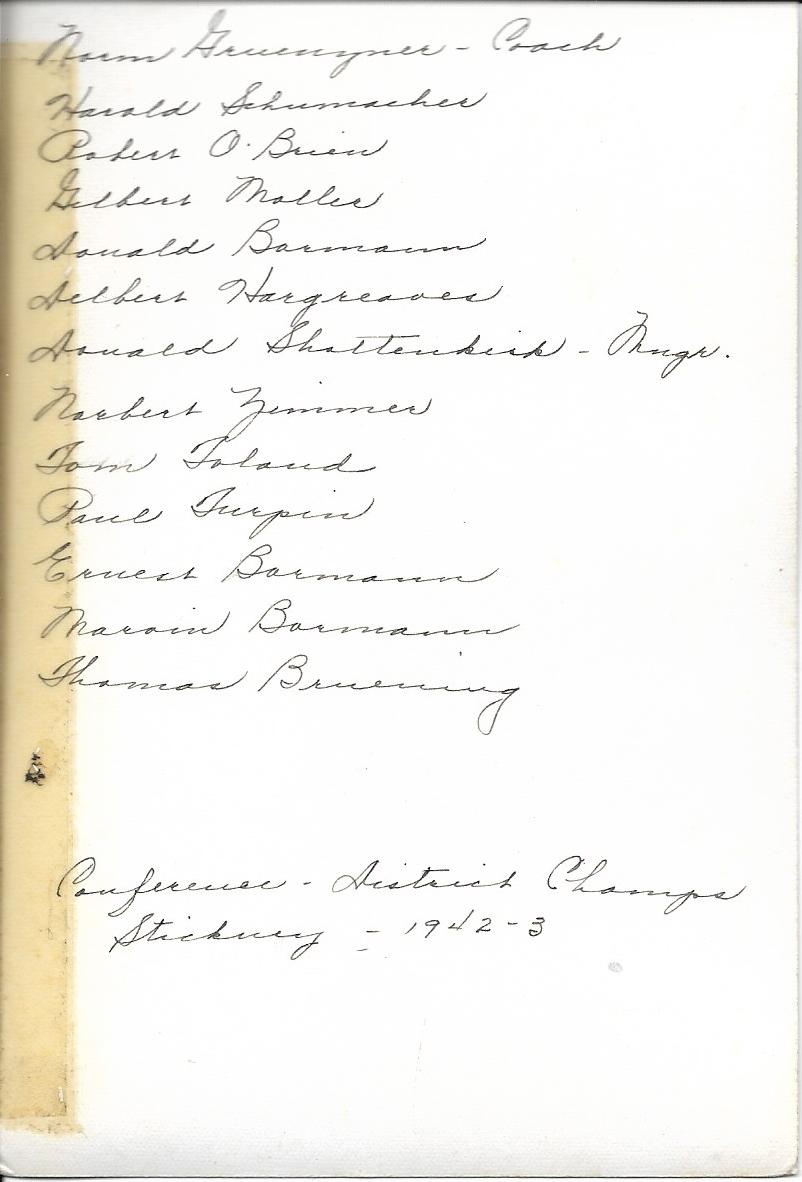 Norm Gruenzner - Coach
Harold Schumacher
Robert O'Brien
Gilbert Moller
Donald Bormann
Delbert Hargreaves
Donald Shottenkirk - Mngr.
Norbert Zimmer
Tom Toland
Paul Turpin
Ernest Bormann
Marvin Bormann
Thomas Bruening
Conference - District Champs
Stickney - 1942-3